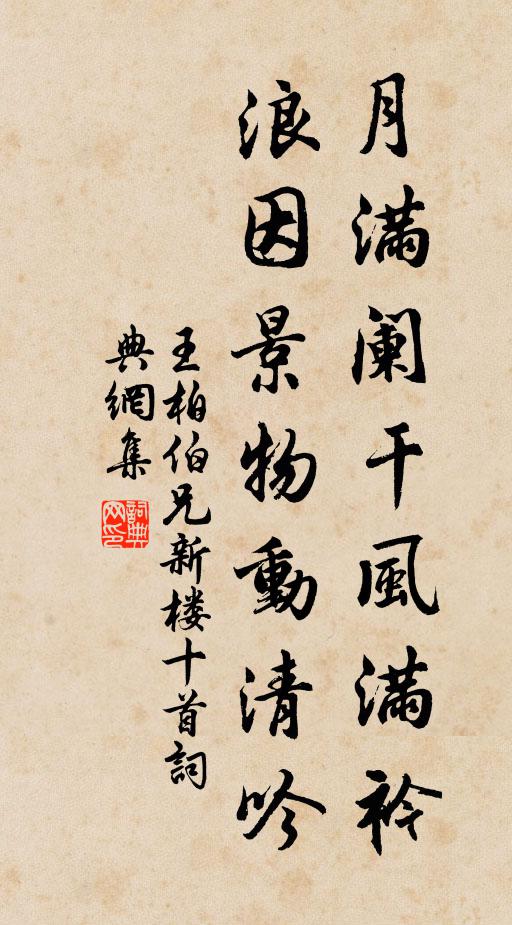 月满阑干风满衿
浪因景物動清吟
王柏伯兄新楼十首詞
典網集
詞典网印